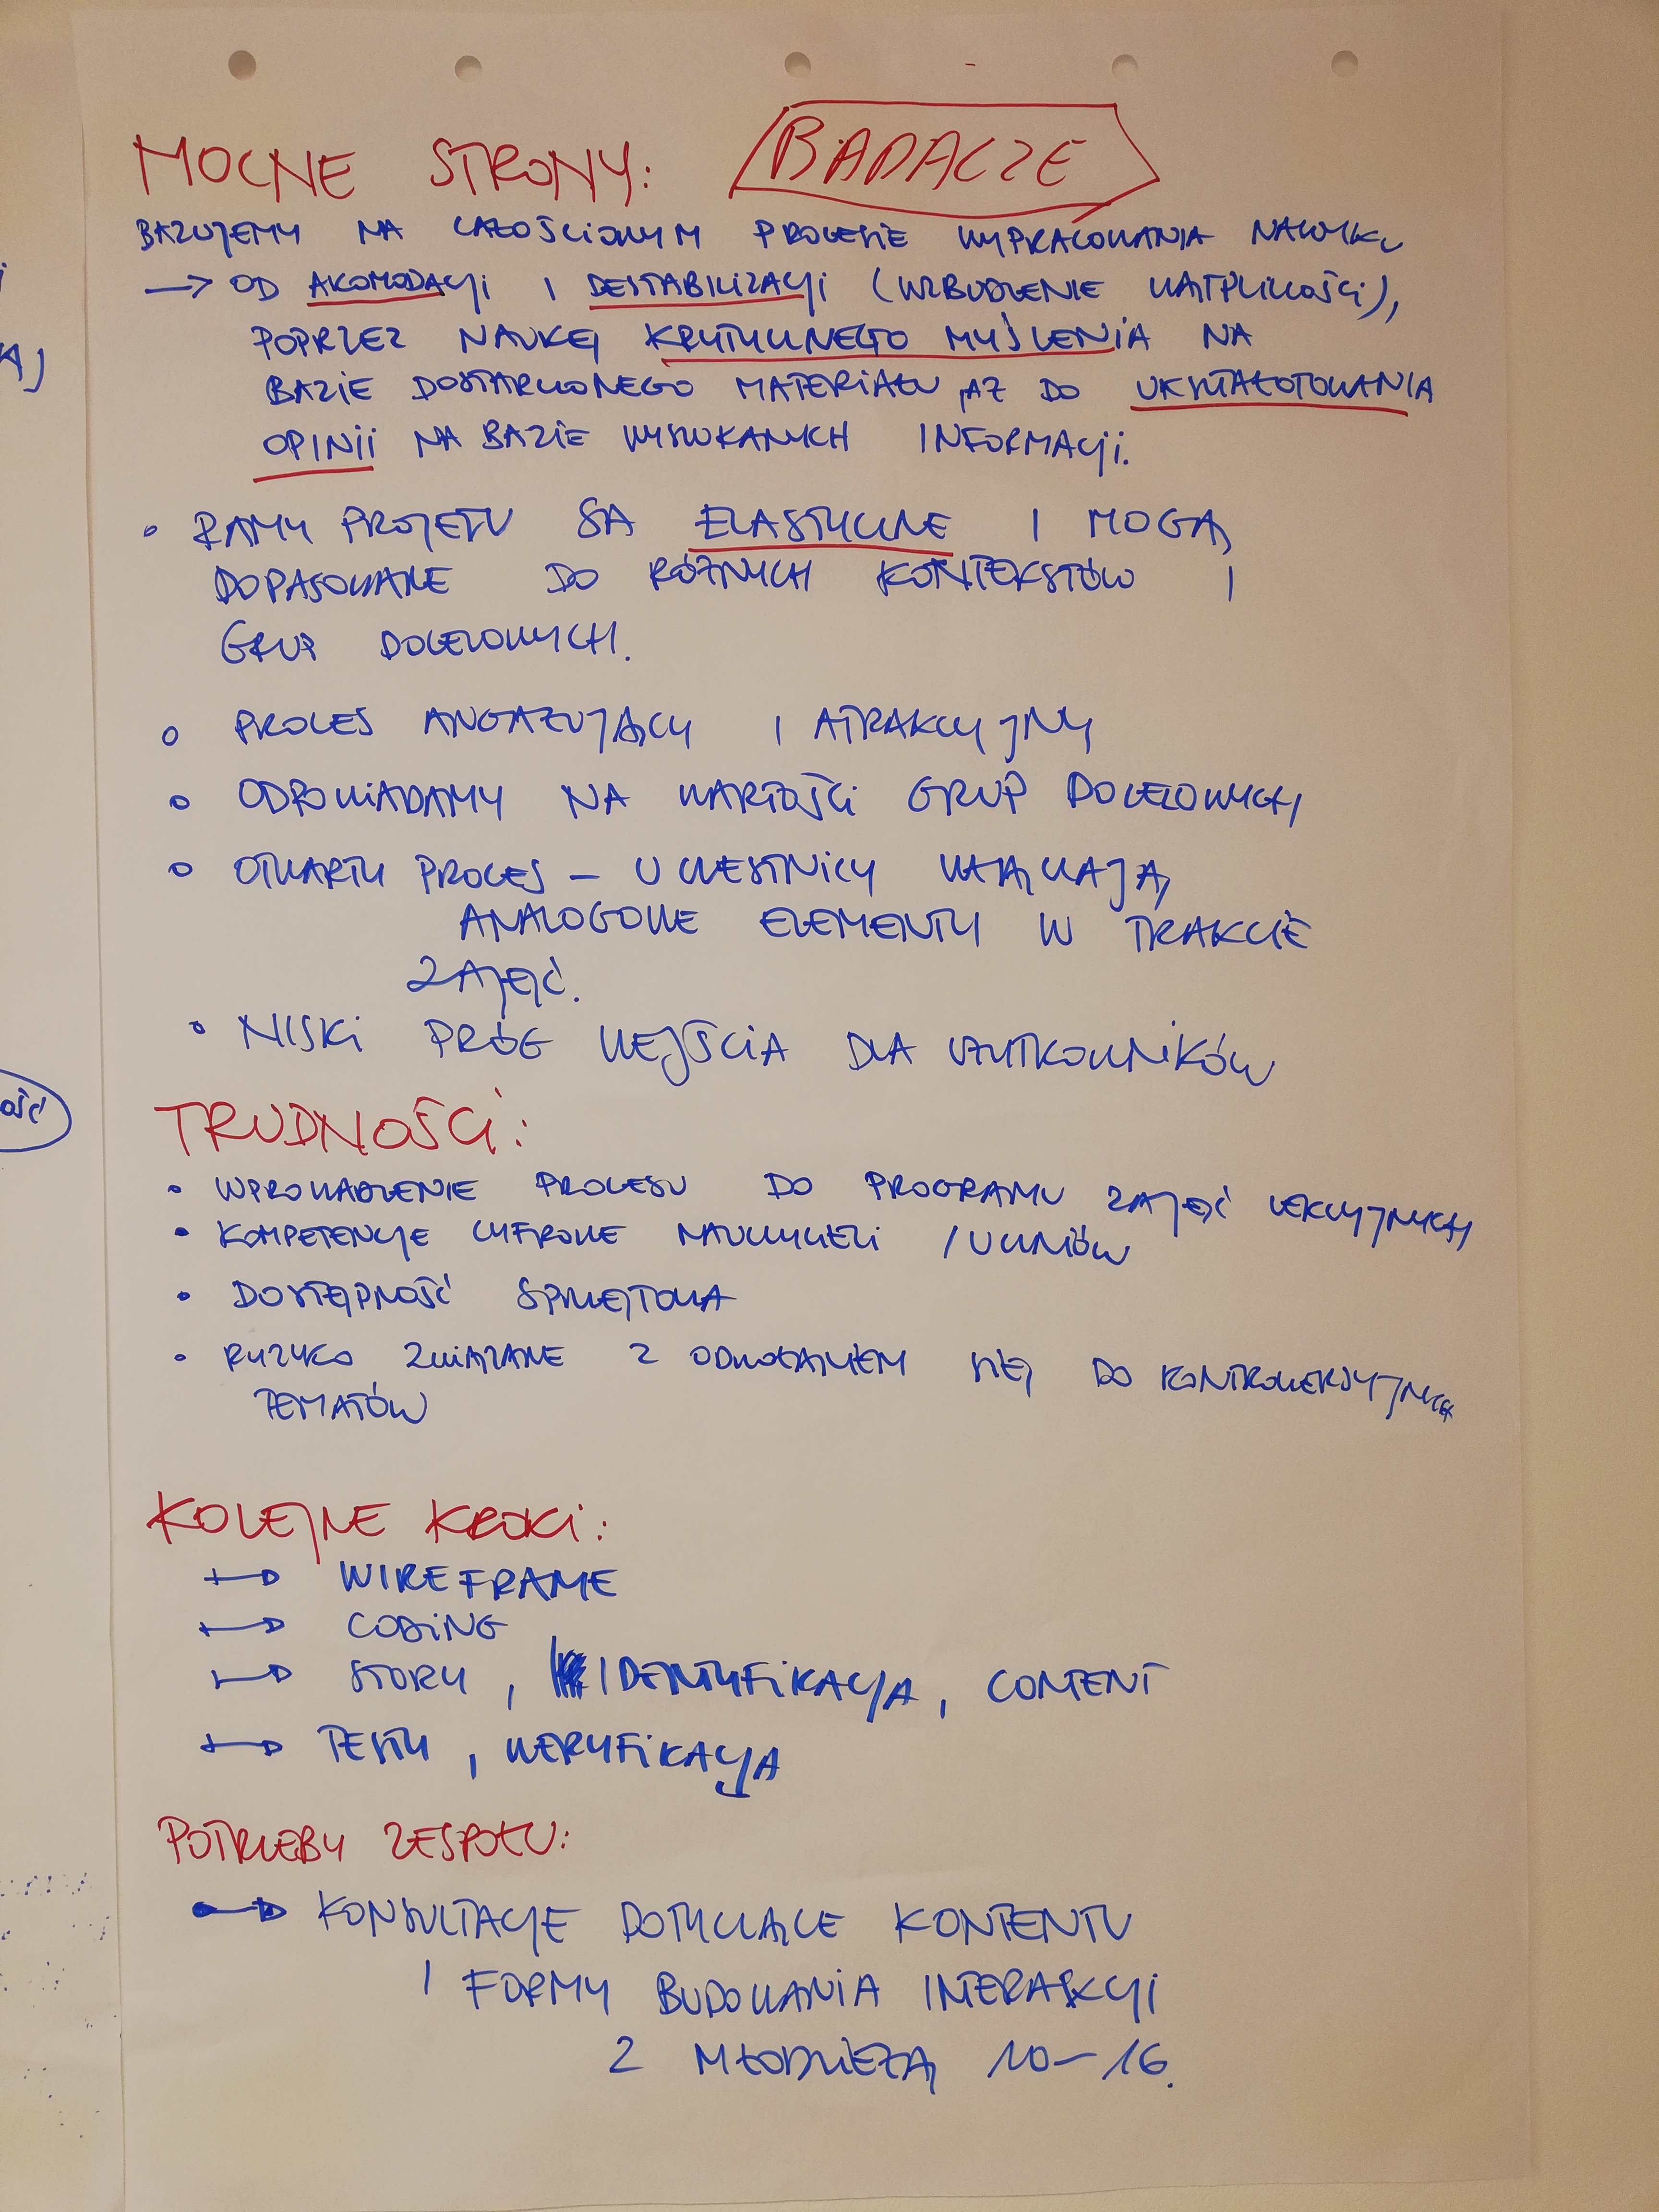 MOCNE STRONY: BADACZE
BAZUJEMY NA CAŁOŚCIOWYM PROCESIE WYPRACOWANIA NAWYKU
→ OD AKOMODACJI I DESTABILIZACJI (WZBUDZENIE WĄTPLIWOŚCI),
POPRZEZ NAUKĘ KRYTYCZNEGO MYŚLENIA NA
BAZIE DOSTARCZONEGO MATERIAŁU, AŻ DO UKSZTAŁTOWANIA
OPINII NA BAZIE WYSZUKANYCH INFORMACJI.
• RAMY PROJETU SĄ ELASTYCZNE I MOGĄ
DOPASOWANE DO RÓŻNYCH KONTEKSTÓW I
GRUP DOCELOWYCH.
• PROCES ANGAŻUJĄCY I ATRAKCYJNY
• ODPOWIADAMY NA WARTOŚCI GRUP DOCELOWYCH
• OTWARTY PROCES – UCZESTNICY WŁĄCZAJĄ
ANALOGOWE ELEMENTY W TRAKCIE
ZAJĘĆ.
• NISKI PRÓG WEJŚCIA DLA UŻYTKOWNIKÓW
TRUDNOŚCI:
• WPROWADZENIE PROCESU DO PROGRAMU ZAJĘĆ LEKCYJNYCH
• KOMPETENCJE CYFROWE NAUCZYCIELI / UCZNIÓW
• DOSTĘPNOŚĆ SPRZĘTOWA
• RYZYKO ZWIĄZANE Z ODWOŁANIEM SIĘ DO KONTROWERSYJNYCH
TEMATÓW
KOLEJNE KROKI:
→ WIREFRAME
→ CODING
→ STORY, IDENTYFIKACJA, CONTENT
→ TESTY, WERYFIKACJA
POTRZEBY ZESPOŁU:
→ KONSULTACJE DOTYCZĄCE KONTENTU
I FORMY BUDOWANIA INTERAKCJI
Z MŁODZIEŻĄ 10–16.
OŚĆ